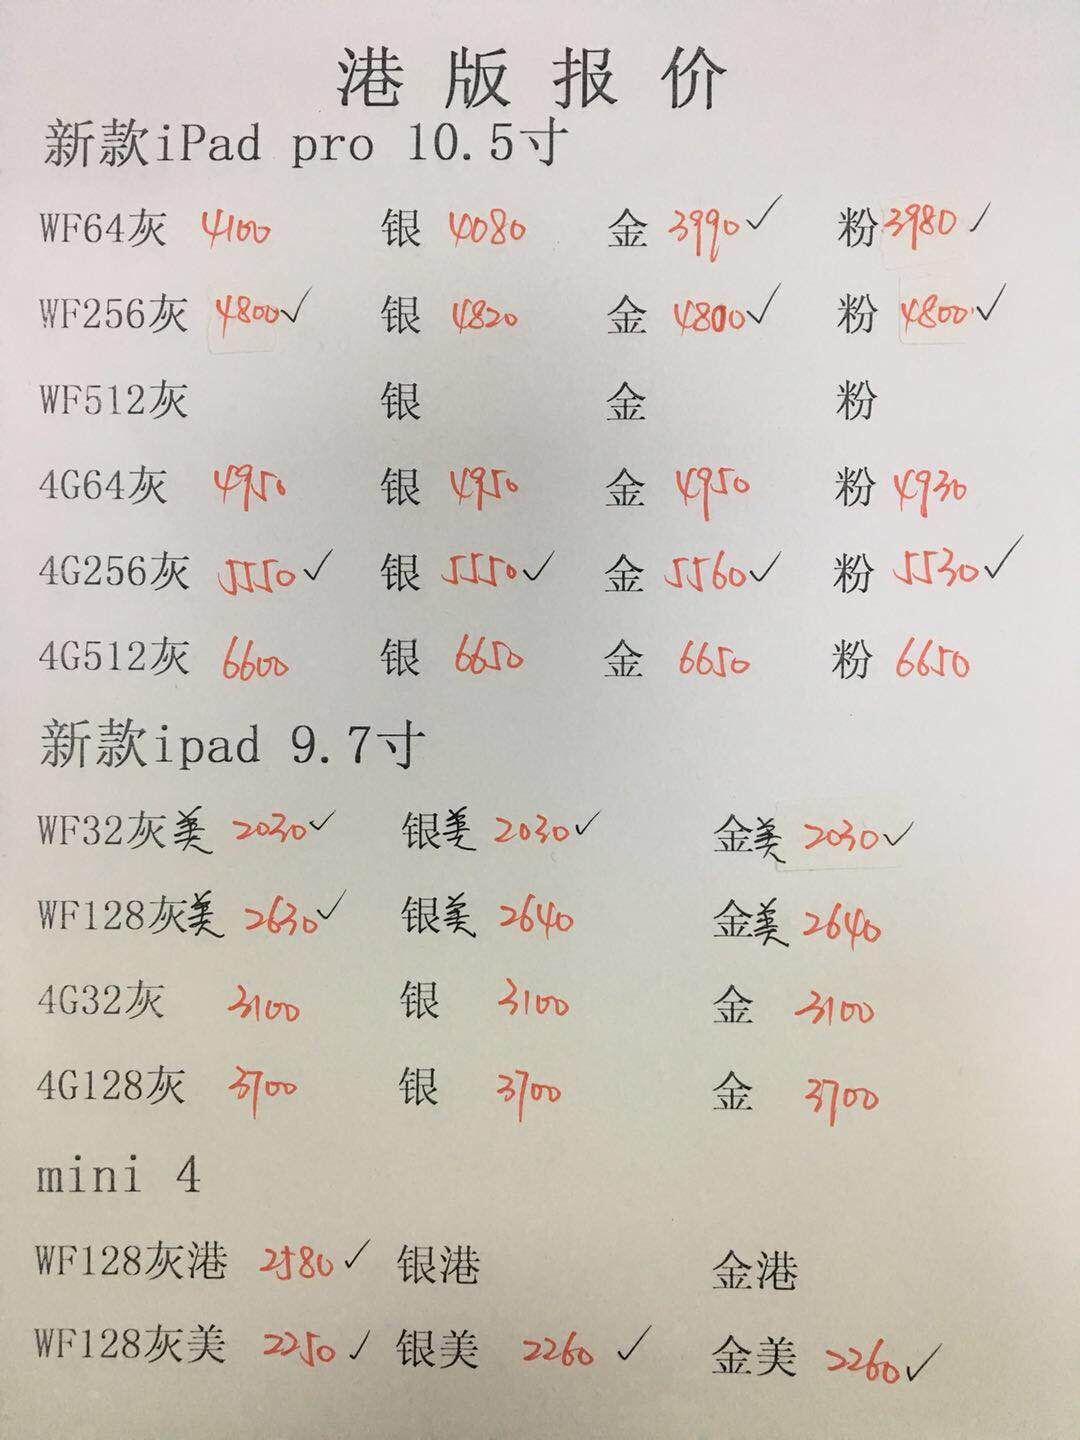 港版报价
新款iPad pro 10.5寸
WF64灰 4100 银 4080 金 3990✓ 粉 3980✓
WF256灰 4800✓ 银 4820 金 4800✓ 粉 4800✓
WF512灰 银 金 粉
4G64灰 4950 银 4950 金 4950 粉 4930
4G256灰 5550✓ 银 5550✓ 金 5560✓ 粉 5530✓
4G512灰 6600 银 6650 金 6650 粉 6650
新款ipad 9.7寸
WF32灰美 2030✓ 银美 2030✓ 金美 2030✓
WF128灰美 2630✓ 银美 2640 金美 2640
4G32灰 3100 银 3100 金 3100
4G128灰 3700 银 3700 金 3700
mini 4
WF128灰港 2580✓ 银港 金港
WF128灰美 2250✓ 银美 2260✓ 金美 2260✓